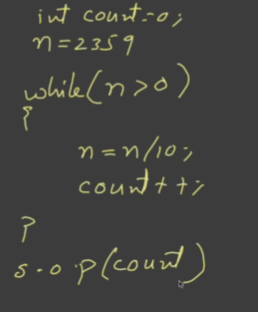 int count=0;
n=2359
while(n>0)
{
n=n/10;
count++;
}
s.o.p(count)